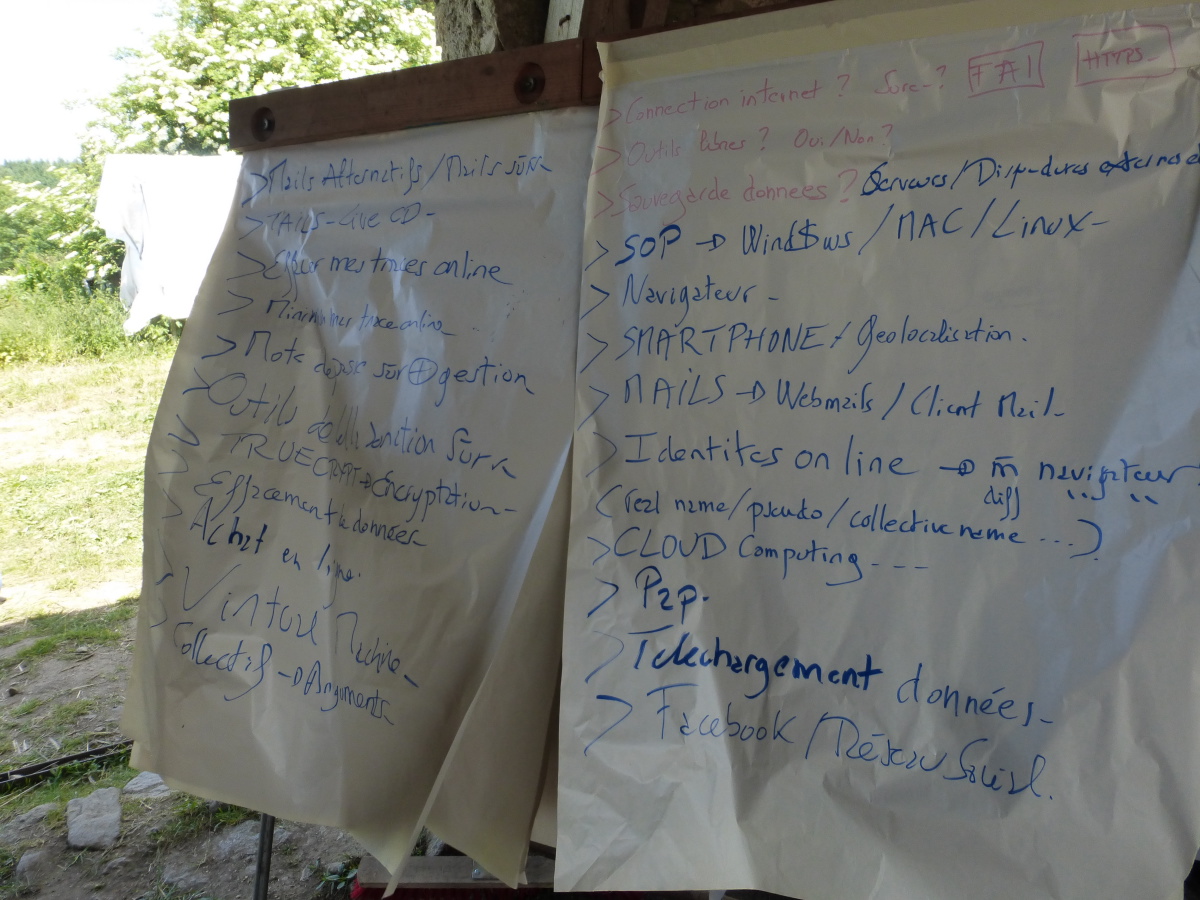 > Mails Alternatifs / Mails sûrs
> TAILS - Live CD -
> Effacer mes traces online
> Minimiser trace online
> Mots de passe sûr ⊕ gestion
> Outils de sûrs
> TRUECRYPT → Encryptation -
> Effacement de données
> Achat en ligne.
> Virtual Machine -
> Collectif → Arguments
> Connection internet ? Sure - ? FAI HTTPS -
> Outils libres ? Oui / Non ?
> Sauvegarde données ? Serveurs / Disp-dures externes
> SOP → Wind$ws / MAC / Linux -
> Navigateur -
> SMARTPHONE / Geolocalisation.
> MAILS → Webmails / Client Mail -
> Identites on line → m̄ navigateur
diff " "
(real name / pseudo / collective name ...)
> CLOUD Computing - - -
> P2p.
> Telechargement données -
> Facebook / Réseau Social.